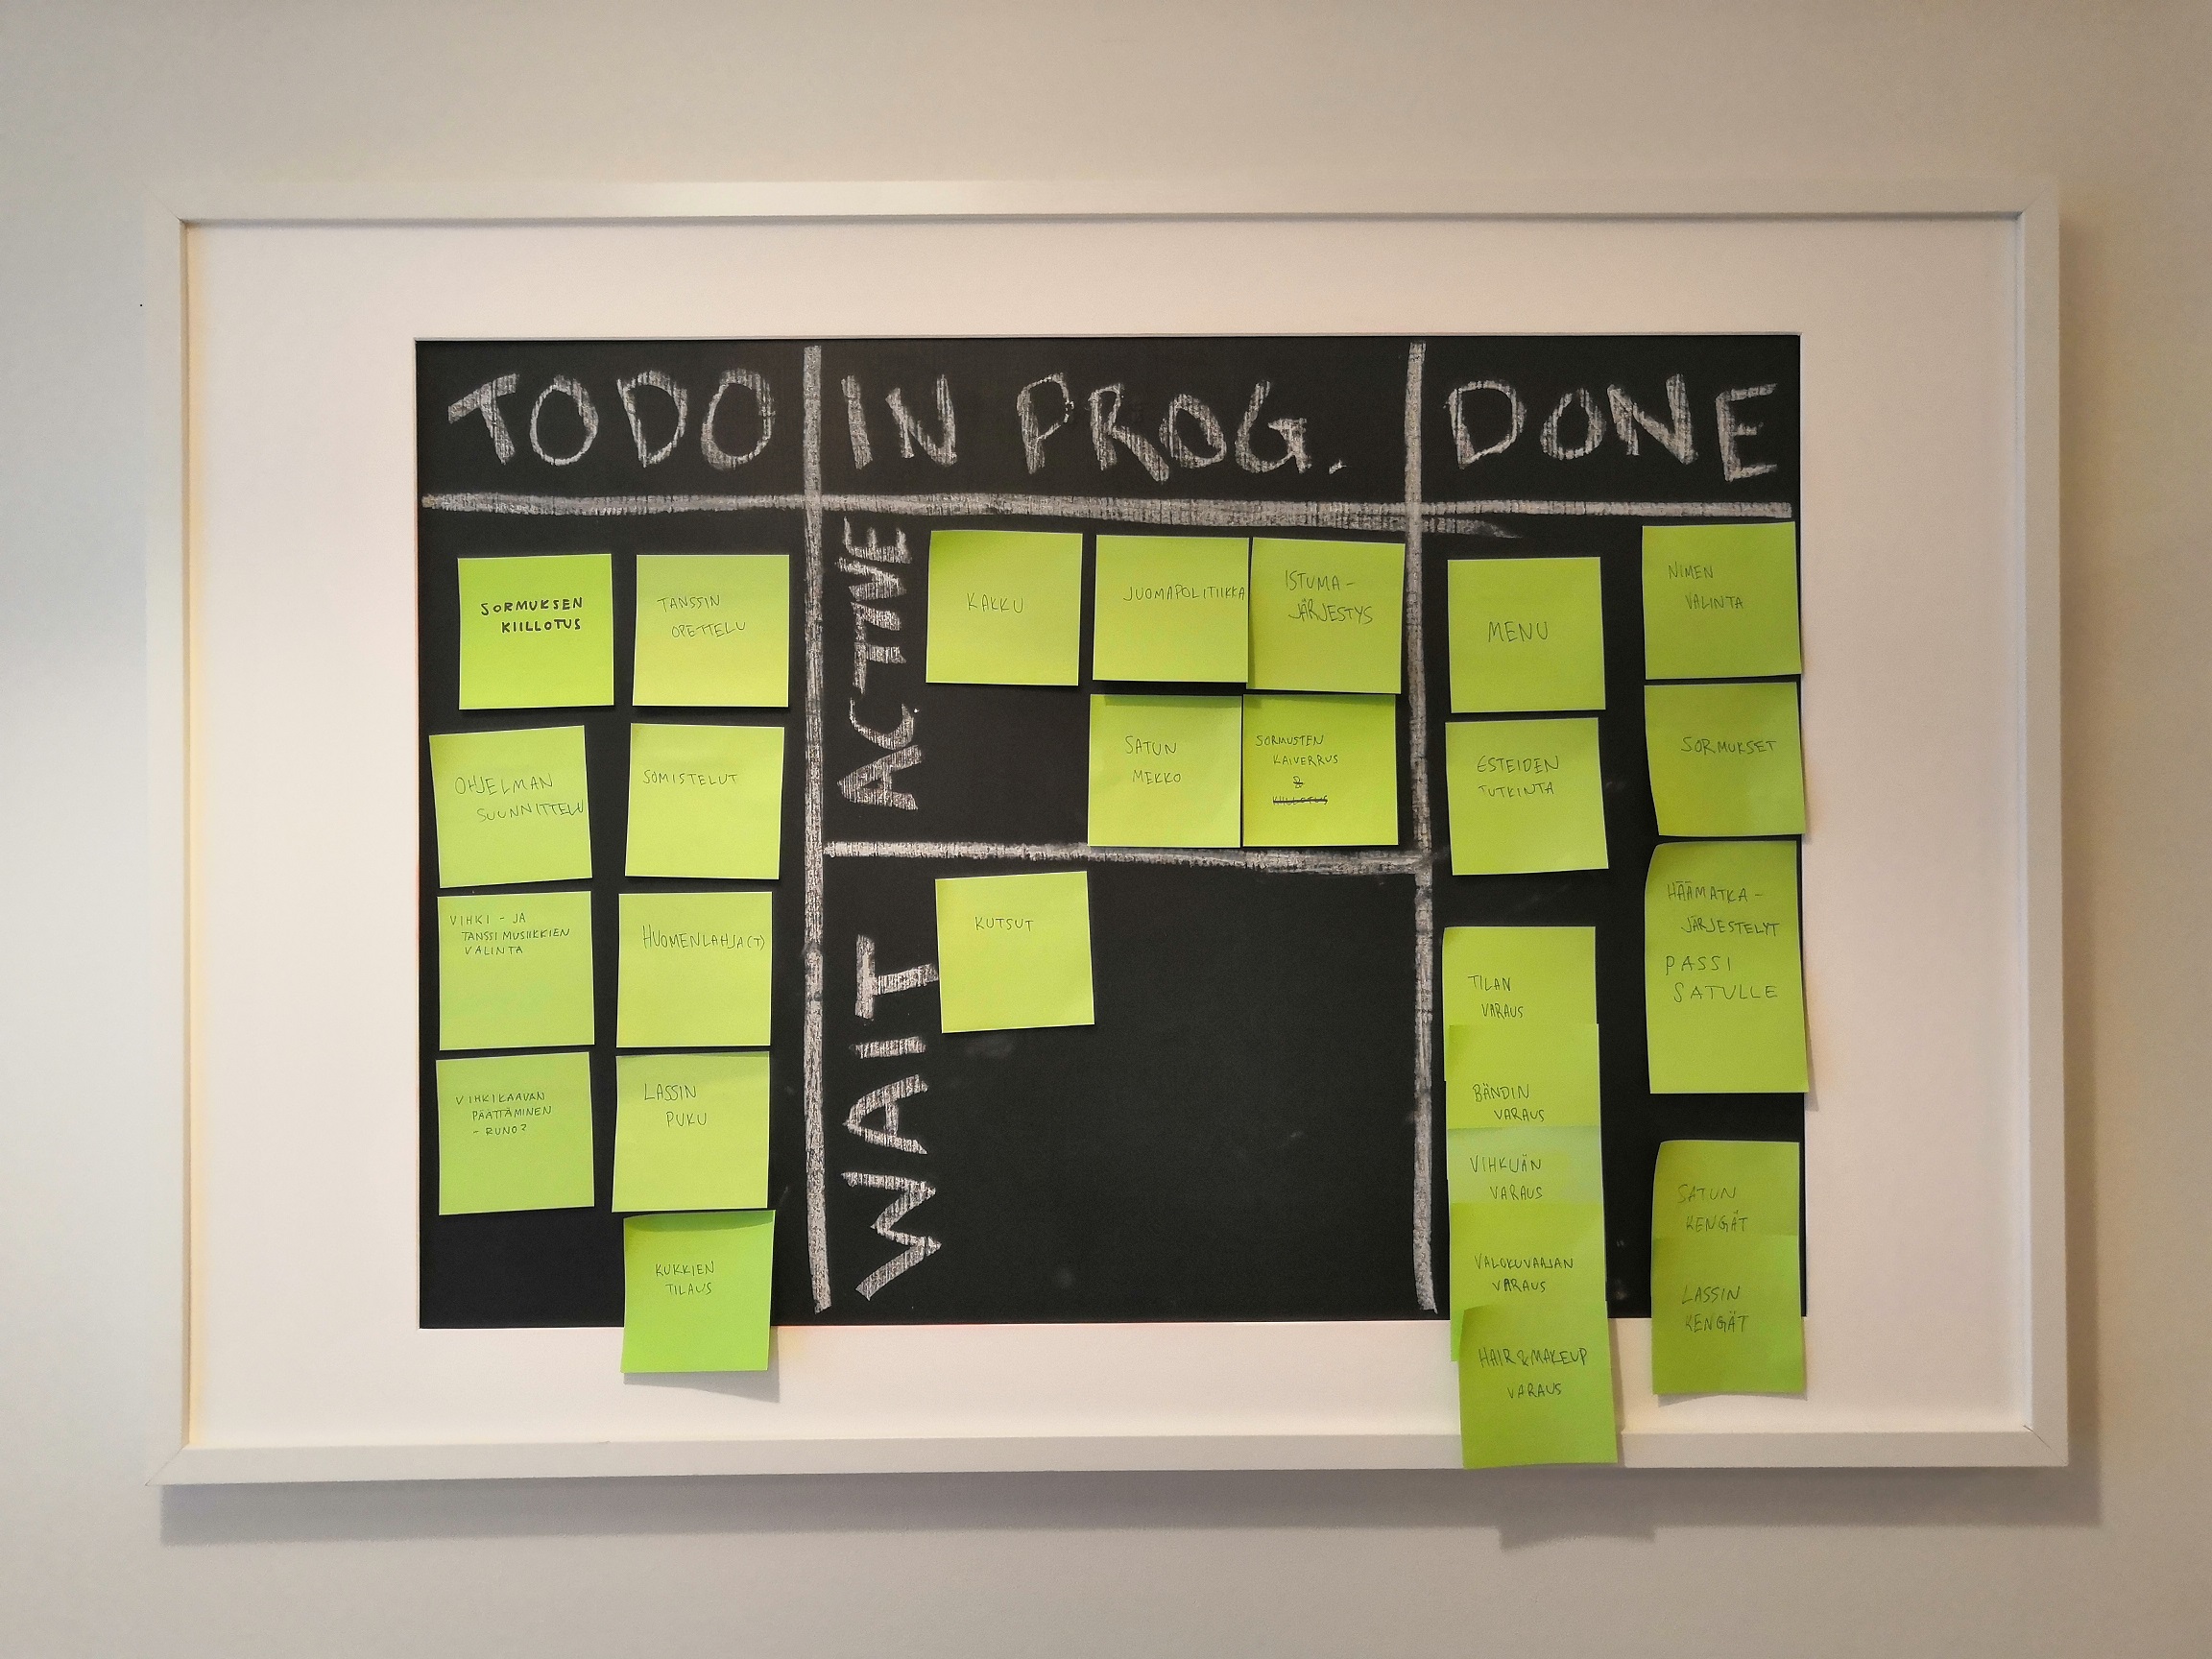 TODO
IN PROG.
DONE
ACTIVE
WAIT
SORMUKSEN
KIILLOTUS
TANSSIN
OPETTELU
OHJELMAN
SUUNNITTELU
SOMISTELUT
VIHKI - JA
TANSSIMUSIIKKIEN
VALINTA
HUOMENLAHJA(T)
VIHKIKAAVAN
PÄÄTTÄMINEN
- RUNO?
LASSIN
PUKU
KUKKIEN
TILAUS
KAKKU
JUOMAPOLITIIKKA
ISTUMA-
JÄRJESTYS
SATUN
MEKKO
SORMUSTEN
KAIVERRUS
&
KIILLOTUS
KUTSUT
MENU
ESTEIDEN
TUTKINTA
TILAN
VARAUS
BÄNDIN
VARAUS
VIHKIJÄN
VARAUS
VALOKUVAAJAN
VARAUS
HAIR & MAKEUP
VARAUS
NIMEN
VALINTA
SORMUKSET
HÄÄMATKA-
JÄRJESTELYT
PASSI
SATULLE
SATUN
KENGÄT
LASSIN
KENGÄT